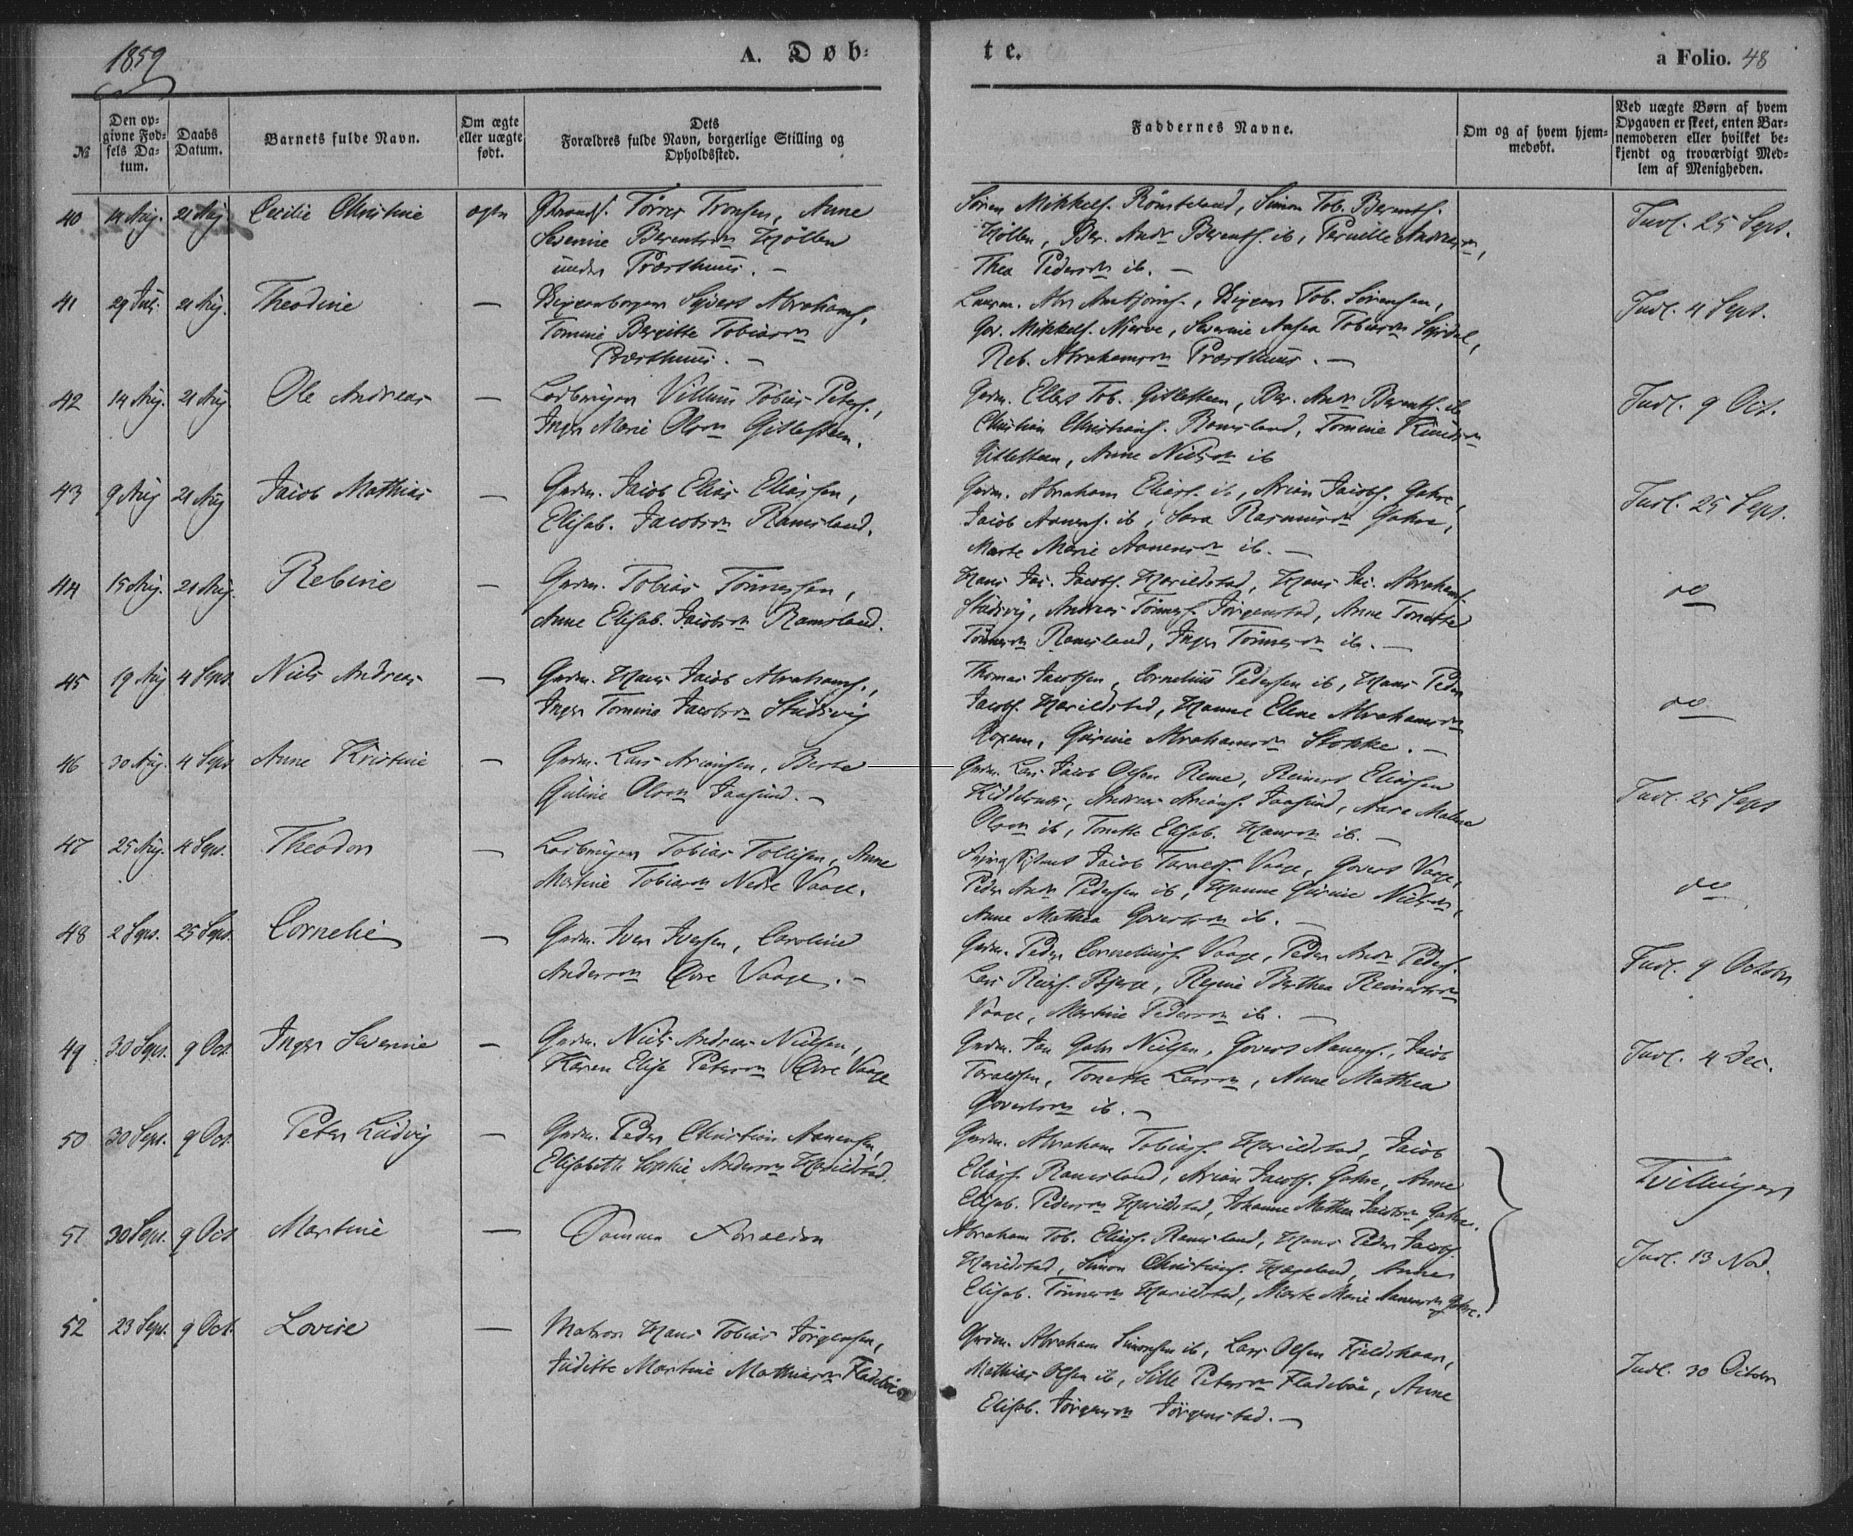 1859
A. Døb-
te.
a Folio. 48
№
Den op-
givne Fød-
sels Da-
tum.
Daabs
Datum.
Barnets fulde Navn.
Om ægte
eller uægte
født.
Dets
Forældres fulde Navn, borgerlige Stilling og
Opholdssted.
Faddernes Navne.
Om og af hvem hjem-
medøbt.
Ved uægte Børn af hvem
Opgaven er skeet, enten Bar-
nemoderen eller hvilket be-
kjendt og troværdigt Med-
lem af Menigheden.
40 14 Aug. 21 Aug. Cecilie Christine ægte Tørres Tronsen, Anne
Severine Berentsdn
under Præsthuus. —
Søren Mikkels. Rønsteland, Simon Tob. Berents.
Ber. Andr Berents. ib, Pernille
Thea Pedersdn ib. —
Indl. 25 Sept.
41 29 Jul. 21 Aug. Theodine — Sivert Abrahams.
Tomine Bergitte Tobiasdn
Præsthuus. —
Tob. Sørensen,
Gov. Mikkels. Njerve, Severine Aasea Tobiasdn
Reb. Abrahamsdn Præsthuus. —
Indl. 4 Sept.
42 14 Aug. 21 Aug. Ole Andreas — Villum Tobias Peters.,
Inger Marie Olsdn Gitlesteen.
Grdm. Ellert Tob. Gitlesteen, Ber. Andr Berents. ib
Christian Christians. Ramsland, Tomine
Gitlesteen, Anne Nielsdn ib
Indl. 9 Oct.
43 9 Aug 21 Aug Jacob Mathias — Grdm. Jacob Elias Eliassen,
Elisab. Jacobsdn Ramsland.
Grdm. Abraham Elias. ib, Arian Jacobs. Gahre,
Jacob Aanens. ib, Sara Rasmusdn Gahre,
Marte Marie Aanensdn ib. —
Indl. 25 Sept.
44 15 Aug. 21 Aug. Rebine — Grdm. Tobias Tønnessen,
Anne Elisab. Jacobsdn Ramsland.
Hans Jac. Jacobs. Harildstad, Hans Jac. Abrahams.
Studsvig, Andreas Tønnes. Jørgenstad, Anne Tonette
Tønnesdn Ramsland, Inger Tønnesdn ib. —
do
45 19 Aug 4 Sept. Niels Andreas — Grdm. Hans Jacob Abrahams.,
Inger Tomine Jacobsdn Studsvig
Thomas Jacobsen, Cornelius Pedersen ib, Hans Peder
Jacobs. Harildstad, Hanne Elene Abrahamsdn
Gurine Abrahamsdn Stokke. —
do
46 30 Aug. 4 Sept Anne Kristine — Grdm. Lars Ariansen, Berte
Guline Olsdn Jaasund. —
Grdm. Jacob Olsen Reme, Reinert Eliassen
Andreas Arians. Jaasund, Malene
Olsdn ib, Tonette Elisab. Hansdn ib. —
Indl. 25 Sept
47 25 Aug. 4 Sept. Theodor — Tobias Tollisen, Anne
Martine Tobiasdn Nedre Vaage.
Jacob Taralds. Vaage, Govert Vaage,
Peder Andr Pedersen ib, Hanne Gurine Nielsdn,
Anne Mathea Govertsdn ib. —
do
48 2 Sept. 25 Sept. Cornelie — Grdm. Iver Iversen, Caroline
Andersdn Øvre Vaage. —
Grdm. Peder Cornelius. Vaage, Peder Andr Peders.
Regine Berthea Reinertsdn
Vaage, Martine Pedersdn ib. —
Indl. 9 October
49 30 Sept. 9 Oct. Inger Severine — Grdm. Niels Andreas Nielsen,
Karen Elise Petersdn Øvre Vaage
Grdm. Nielsen, Govert Aanens., Jacob
Taraldsen, Tonette Larsdn, Anne Mathea
Govertsdn ib. —
Indl. 4 Dec.
50 30 Sept. 9 Oct. Peter Ludvig — Grdm. Peder Christian Aanensen,
Elisabeth Sophie Andersdn Harildstad.
Grdm. Abraham Tobias. Harildstad, Jacob
Elias. Ramsland, Arian Jacobs. Gahre, Anne
Elisab. Pedersdn Harildstad, Johanne Mathea Jacobsdn Gahre.
Tvillinger
51 30 Sept. 9 Oct Martine — Samme Forældre
Abraham Tob. Elias. Ramsland, Hans Peder Jacobs.
Harildstad, Simon Christians. Hageland, Andrea
Elisab. Tønnesdn Harildstad, Marte Marie Aanensdn Gahre.
Indl. 13 Nov.
52 23 Sept. 9 Oct. Lovise — Matros Hans Tobias Jørgensen,
Juditte Martine Mathiasdn Fladebøe
Grdm. Abraham Simonsen ib, Lars Olsen Fjeldskaar,
Mathias Olsen ib, Sille Petersdn Fladebøe, Anne
Elisab. Jørgensdn Jørgenstad. —
Indl. 30 October